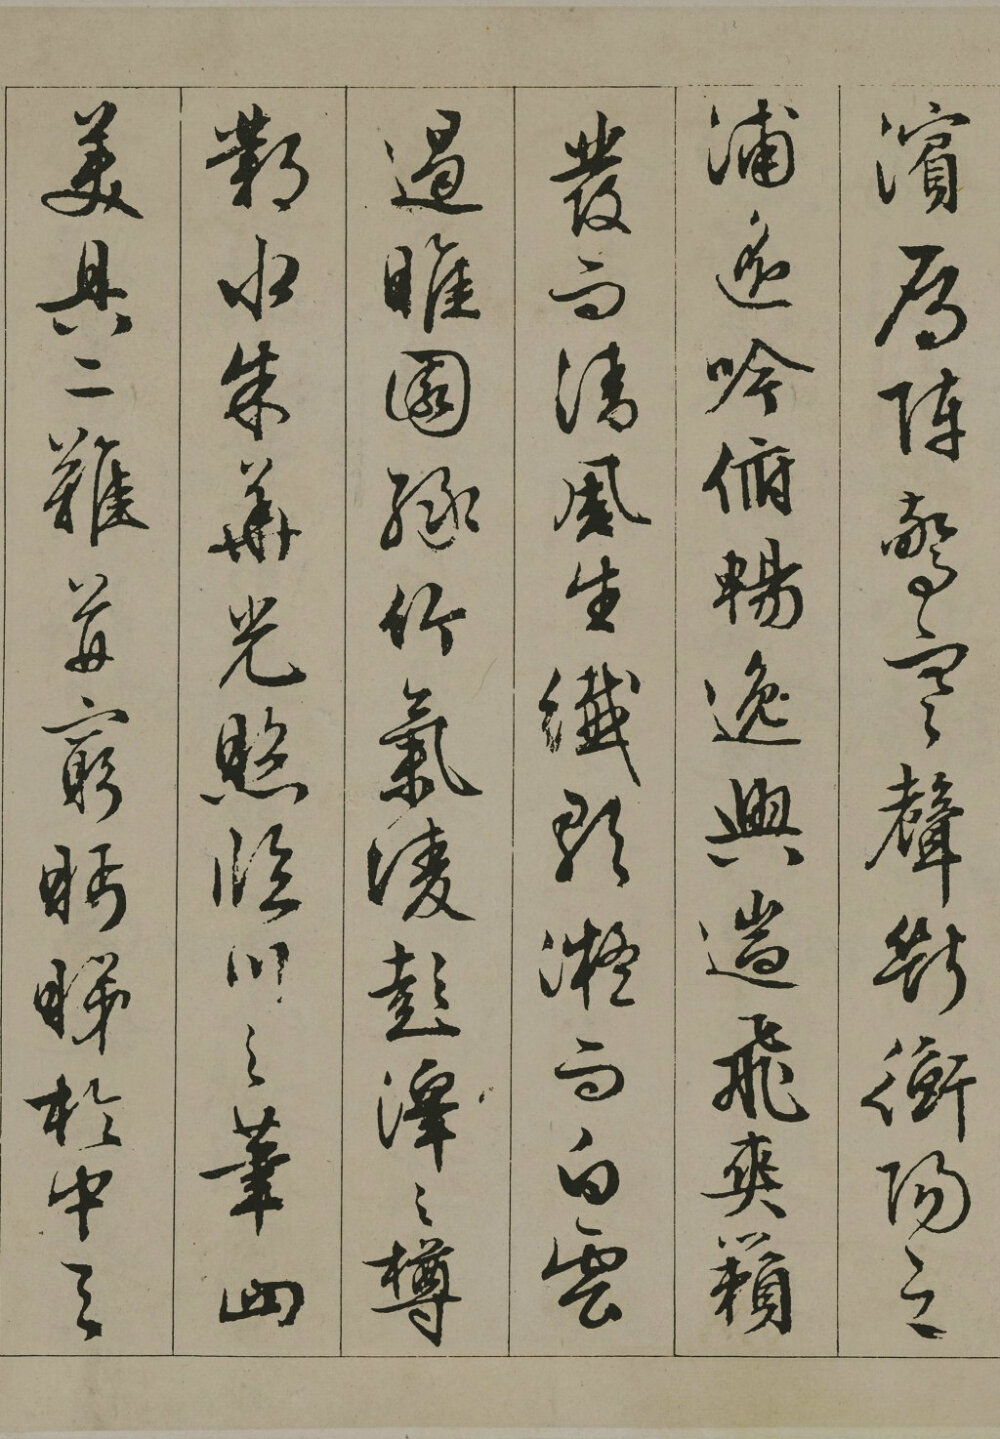 濱鴈陣驚寒聲斷衡陽之
浦遙吟俯暢逸興遄飛爽籟
發而清風生纖歌凝而白雲
遏睢園綠竹氣凌彭澤之樽
鄴水朱華光照臨川之筆四
美具二難并窮眄睇於中天